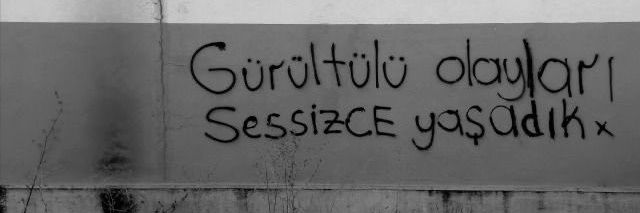 Gürültülü olayları
SessizCE yaşadık x